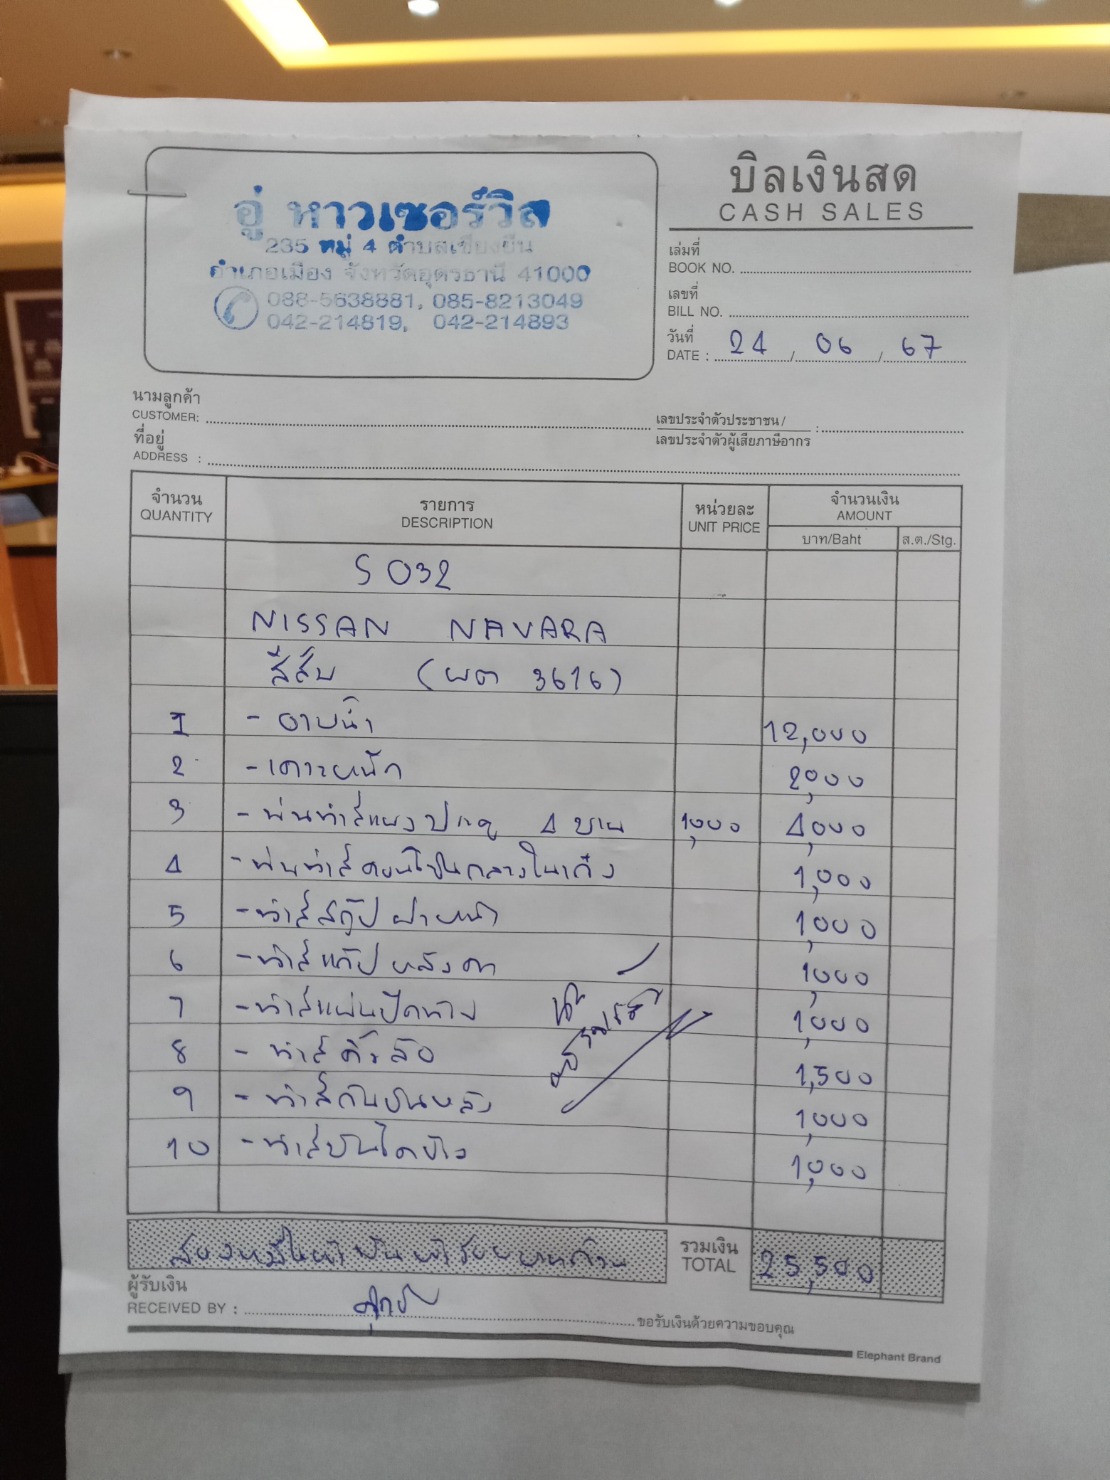 บิลเงินสด
CASH SALES
อู่ หาวเซอร์วิส
235 หมู่ 4 ตำบลเชียงยืน
อำเภอเมือง จังหวัดอุดรธานี 41000
088-5638881, 085-8213049
042-214819, 042-214893
เล่มที่
BOOK NO.
เลขที่
BILL NO.
วันที่
DATE : 24 / 06 / 67
นามลูกค้า
CUSTOMER:
เลขประจำตัวประชาชน /
เลขประจำตัวผู้เสียภาษีอากร :
ที่อยู่
ADDRESS :
จำนวน รายการ หน่วยละ จำนวนเงิน
QUANTITY DESCRIPTION UNIT PRICE AMOUNT
บาท/Baht ส.ต./Stg.
S032
NISSAN NAVARA
สีส้ม (ผต 3616)
1 - อาบน้ำ 12,000
2 - เคาะหนัก 2,000
3 - พ่นทำสีแผงประตู 4 บาน 1,000 4,000
4 - พ่นทำสีคอนโซนกลางในเก๋ง 1,000
5 - ทำสีสกู๊ปฝาหน้า 1,000
6 - ทำสีแก๊ปหลังคา 1,000
7 - ทำสีแผ่นปิดท้าย 1,000
8 - ทำสีคิ้วล้อ 1,500
9 - ทำสีกันชนหลัง 1,000
10 - ทำสีบันไดข้าง 1,000
สองหมื่นห้าพันห้าร้อยบาทถ้วน
รวมเงิน
TOTAL 25,500
ผู้รับเงิน
RECEIVED BY :
ขอรับเงินด้วยความขอบคุณ
Elephant Brand